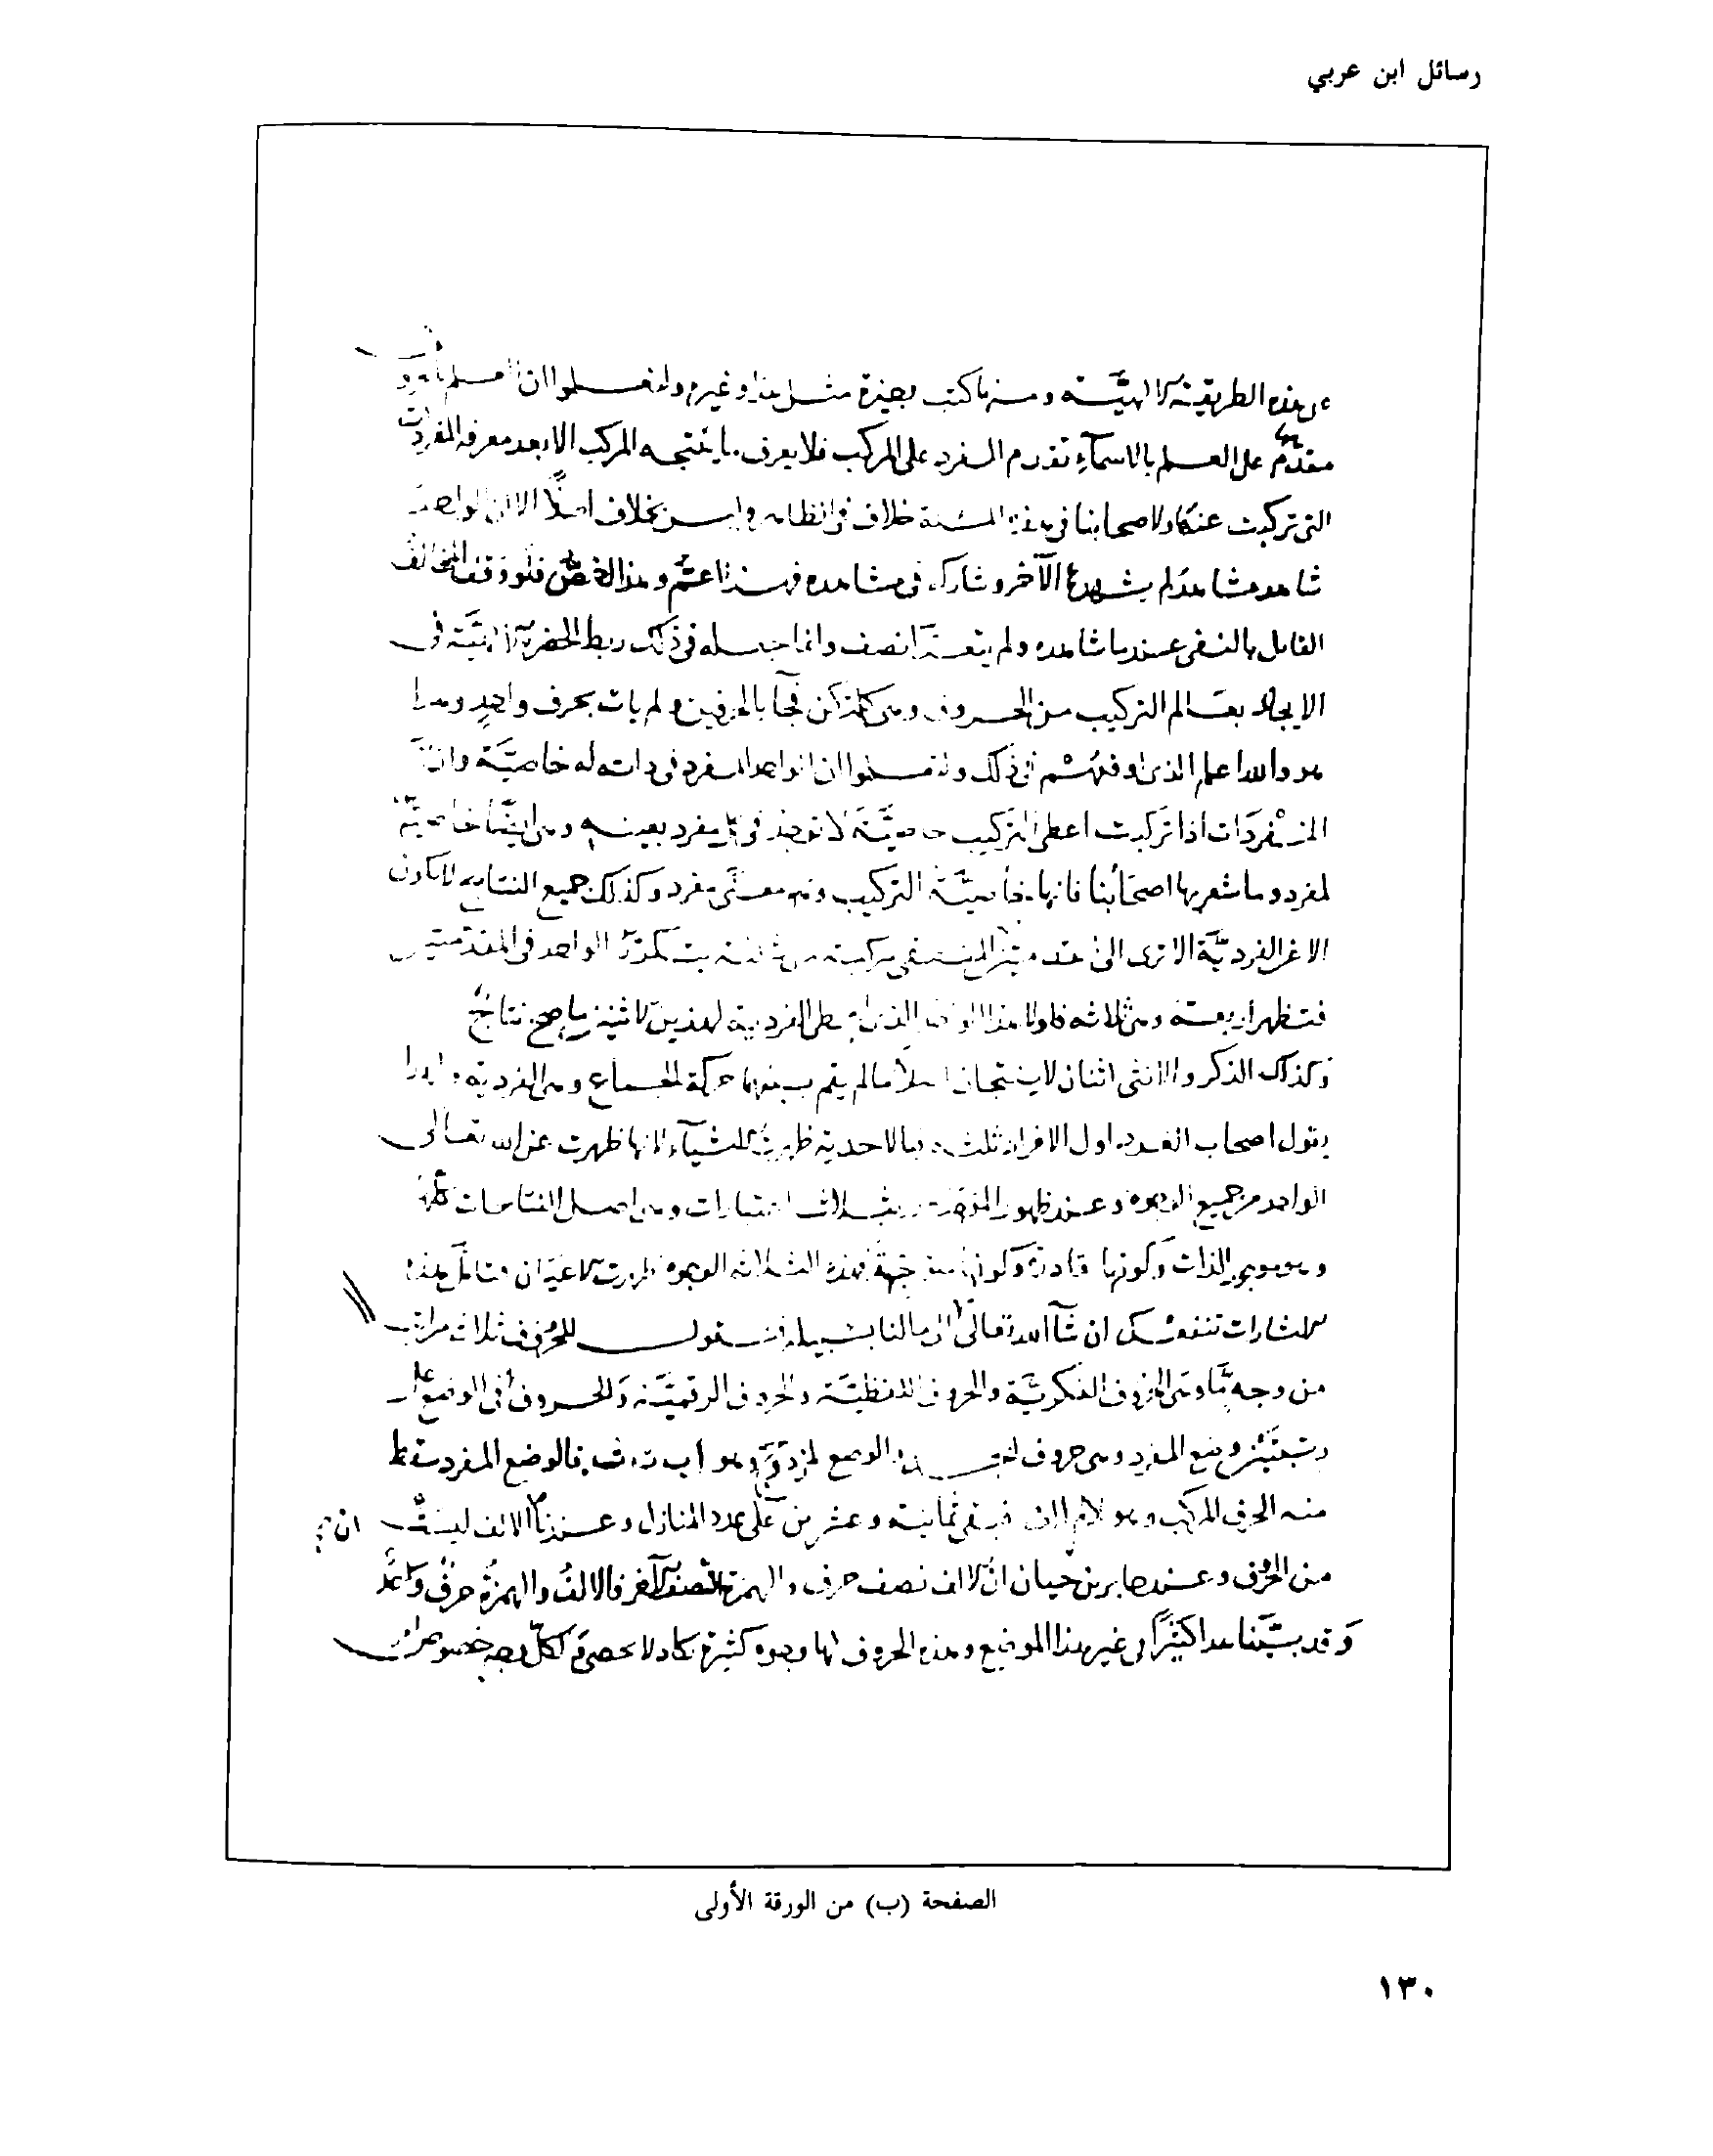 رسائل ابن عربي
هذه الطريقة الالهيّة كتب بعزة مثل هذا وغيره ولتعلموا ان
مقدّم على العلم بالاسمآء تقدم المفرد على المركب فلا يعرف ما ينتجه المركب الا بعد معرفة المفردات
التى تركبت عنها ولاصحابنا فى هذه المسئلة خلاف فى انظارهم وليس بخلاف اصلا الا ان الواحد
شاهد مشاهد لم يشهدها الآخر وشاركه فى مشاهده فهذا اعم وهذا اخص فلو وقف المخالف
القايل بالنفى عند ما شاهده ولم يتعد انصف وانما جعله فى ذلك ربط الحضرة الالهيّة فى
الايجاد بعالم التركيب من الحروف وهى كلمة كن فجآ بالحرفين ولم يات بحرف واحد وهذا
هو والله اعلم الذى اوقفهم فى ذلك ولتعلموا ان الواحد المفرد فى ذاته له خاصيّة وان
المفردات اذا تركبت اعطى التركيب خاصيّة لا توجد فى كل مفرد بعينه وهى ايضا خاصيّة
لمفرد وما شعر بها اصحابنا فانها خاصيّة التركيب وهو معنى مفرد وكذلك جميع النتايج لا تكون
الا عن الفرديّة الا ترى الى مركبة من ثلاثة الواحد فى المقدمتين
فتظهر اربعة وهى ثلاثة فلولا هذا الواحد الذى اعطى الفردية لهذين الاثنين ما صح نتاج
وكذلك الذكر والانثى اثنان لا ينتجان اصلا ما لم يقم بينهما حركة الجماع وهى الفردية ولهذا
يقول اصحاب العدد اول الافراد ثلثة وبالاحدية ظهرت الاشيآء لانها ظهرت عن الله تعالى
الواحد من جميع الوجوه وعند ظهور بثلاث اعتبارات وهى اصل النتاجات كلها
وهو وجود الذات وكونها قادرة وكونها متوجهة فهذه الثلاثة الوجوه ظهرت الاعيان فتامل هذه
الاشارات تنفعك ان شآ الله تعالى الى ما لنا بسبيله فنقول للحروف ثلاث مراتب
من وجه مّا وهى الحروف الفكريّة والحروف اللفظيّة والحروف الرقميّة والحروف فى الوضع على
رتبتين وضع المفرد وهى حروف ابجد والوضع المزدوج وهو ا ب ت ث فالوضع المفرد سقط
منه الحرف المركب وهو لام الف فبقى ثمانية وعشرين على عدد المنازل وعندنا الالف ليست
من الحروف وعند جابر بن حيان ان الالف نصف حرف والهمزة النصف الآخر فالالف والهمزة حرف واحد
وقد بيّنا هذا كثيرا فى غير هذا الموضع وهذه الحروف لها وجوه كثيرة تكاد لا تحصى فى كل وجه خصوص مراتب
الصفحة (ب) من الورقة الأولى
١٣٠